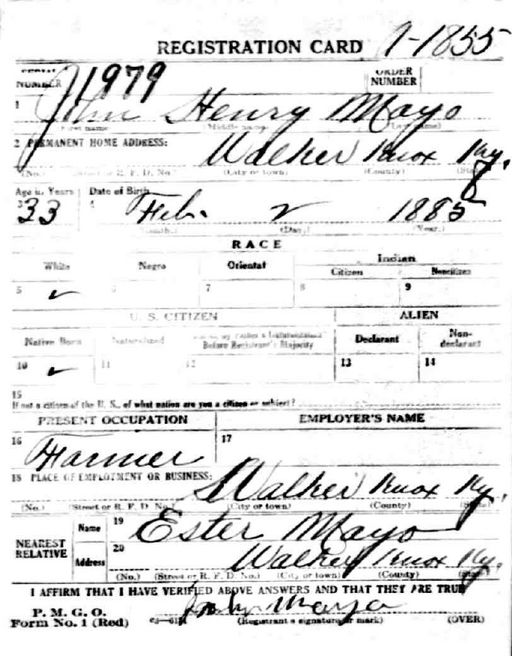 REGISTRATION CARD 1-1855
SERIAL NUMBER 1979 ORDER NUMBER
1 John Henry Mayo
First name Middle name Last name)
2 PERMANENT HOME ADDRESS: Walker Knox Ky.
(No.) (Street or R. F. D. No.) (City or town) (County) (State)
Age in Years Date of Birth
3 33 4 Feb. 2 1885
(Month.) (Day.) (Year.)
RACE
White Negro Oriental Indian
Citizen Noncitizen
5 ✓ 6 7 8 9
U. S. CITIZEN ALIEN
Native Born Naturalized Citizen by Father's Naturalization Before Registrant's Majority Declarant Non-declarant
10 ✓ 11 12 13 14
15
If not a citizen of the U. S., of what nation are you a citizen or subject?
PRESENT OCCUPATION EMPLOYER'S NAME
16 Farmer 17
18 PLACE OF EMPLOYMENT OR BUSINESS: Walker Knox Ky.
(No.) (Street or R. F. D. No.) (City or town) (County) (State)
NEAREST RELATIVE Name 19 Ester Mayo
Address 20 Walker Knox Ky.
(No.) (Street or R. F. D. No.) (City or town) (County) (State)
I AFFIRM THAT I HAVE VERIFIED ABOVE ANSWERS AND THAT THEY ARE TRUE
P. M. G. O.
Form No. 1 (Red) John Mayo
(Registrant's signature or mark) (OVER)